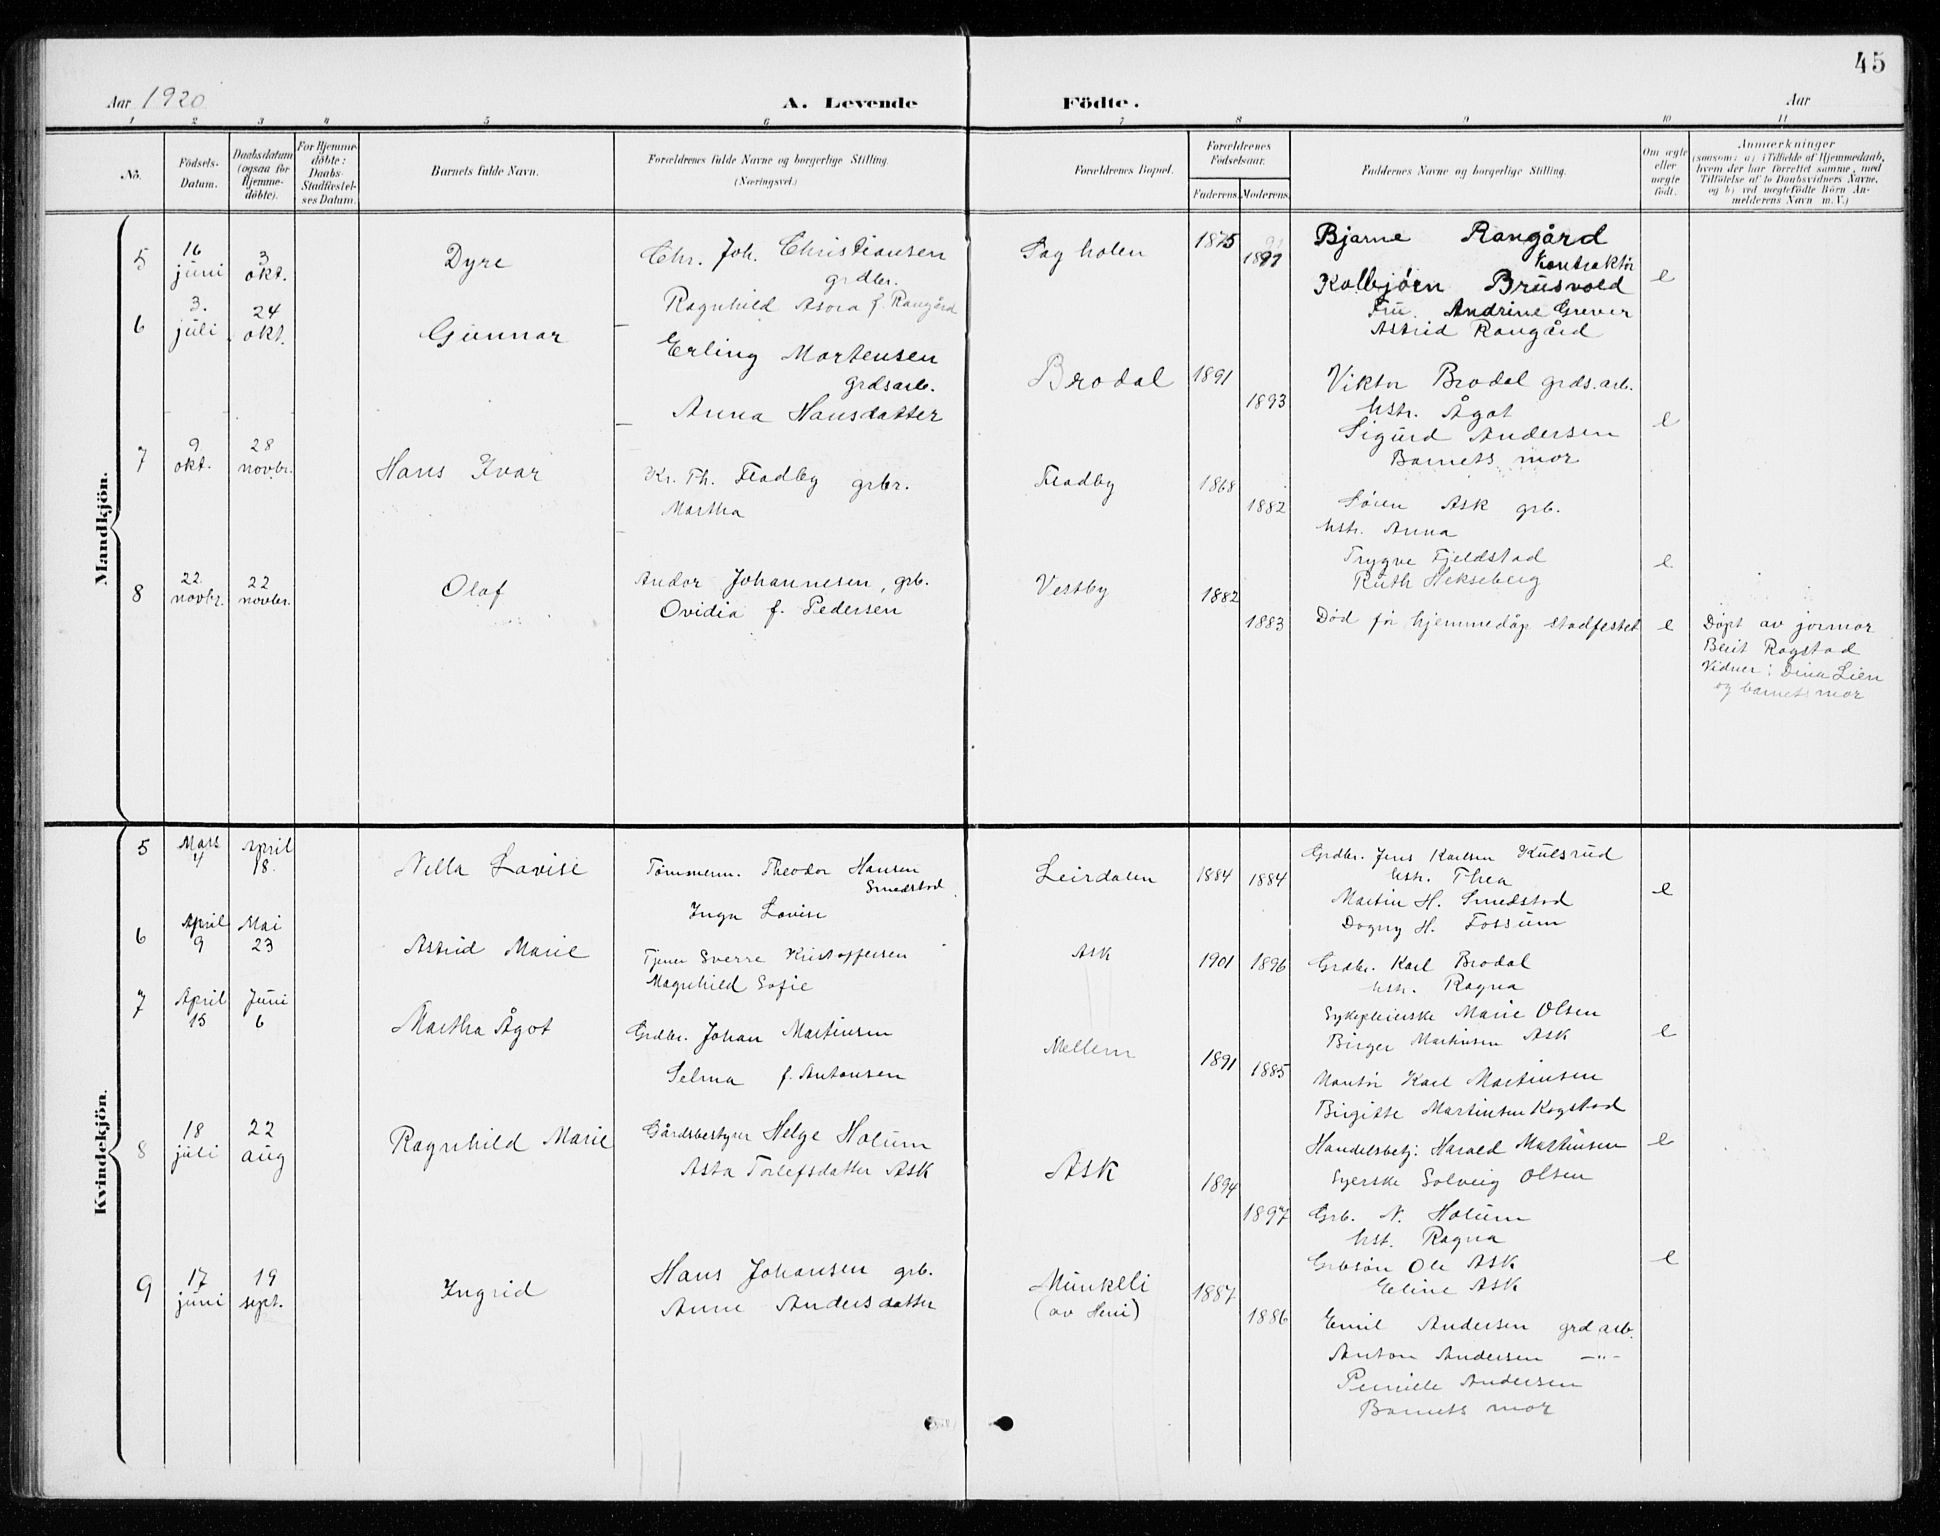 45
Aar 1920
A. Levende Födte.
Aar
1 2 3 4 5 6 7 8 9 10 11
No.
Födsels-Datum.
Daabsdatum (ogsaa for Hjemme-döbte).
For Hjemme-döbte: Daabs-Stadfæstel-ses Datum.
Barnets fulde Navn.
Forældrenes fulde Navne og borgerlige Stilling. (Næringsvei.)
Forældrenes Bopæl.
Forældrenes Födselsaar.
Faderens. Moderens.
Faddernes Navne og borgerlige Stilling.
Om ægte eller uægte født.
Anmærkninger
(saasom: a) i Tilfælde af Hjemmedaab, hvem der har forrettet samme, med Tilföielse af to Daabsvidners Navne, og b) ved uægtefödte Börn An-melderens Navn m. V.)
Mandkjön.
5
16 juni
3 okt.
Dyre
Chr. Joh. Christiansen
grdbr.
Ragnhild Asora f. Rangård
Sagholen
1875
1891
Bjarne Rangård
kontraktør
Kolbjørn Brusvold
Fru. Andrine Grever
Astrid Rangård
e
6
3. juli
24 okt.
Gunnar
Erling Martensen
grdsarb.
Anna Hansdatter
Brodal
1891
1893
Viktor Brodal grds.arb.
hstr. Ågot
Sigurd Andersen
Barnets mor
e
7
9 okt.
28 novbr.
Hans Ivar
Kr. Th. Fladby grbr.
Martha
Fladby
1868
1882
Søren Ask grb.
hstr. Anna
Trygve Fjeldstad
Ruth Hekseberg
e
8
22 novbr.
22 novbr.
Olaf
Andor Johannesen, grb.
Ovidia f. Pedersen
Vestby
1882
1883
Død før hjemmedåp stadfestet
e
Døpt av jormor
Berit Rogstad
Vidner: Dina Lien
og barnets mor
Kvindekjön.
5
Mars 4
April 18.
Nella Lovise
Tømmerm. Theodor Hansen
Smedstad
Inga Lovise
Leirdalen
1884 1884
Grdbr. Jens Karlsen Kulsrud
hstr. Thea
Martin H. Smedstad
Dagny H. Fossum
e
6
April 9
Mai 23
Astrid Marie
Tjener Sverre Kristoffersen
Magnhild Sofie
Ask
1901 1896
Grdbr. Karl Brodal
hstr. Ragna
Sykepleierske Marie Olsen
Birger Martinsen Ask
e
7
April 15
Juni 6
Martha Ågot
Grdbr. Johan Martinsen
Selma f. Antonsen
Mellem
1891 1885
Montør Karl Martinsen
Birgitte Martinsen Kogstad
Handelsbetj. Harald Martinsen
Syerske Solveig Olsen
e
8
18 juli
22 aug
Ragnhild Marie
Gårdsbestyrer Helge Holum
Asta Torlefsdatter Ask
Ask
1894
1897
Grb. N. Holum
hst. Ragna
Grbsøn Ole Ask
Eline Ask
e
9
17 juni
19 sept.
Ingrid
Hans Johansen grb.
Anne Andersdatter
Munkeli
(av Heni)
1887
1886
Emil Andersen grd arb.
Anton Andersen —"—
Pernille Andersen
Barnets mor